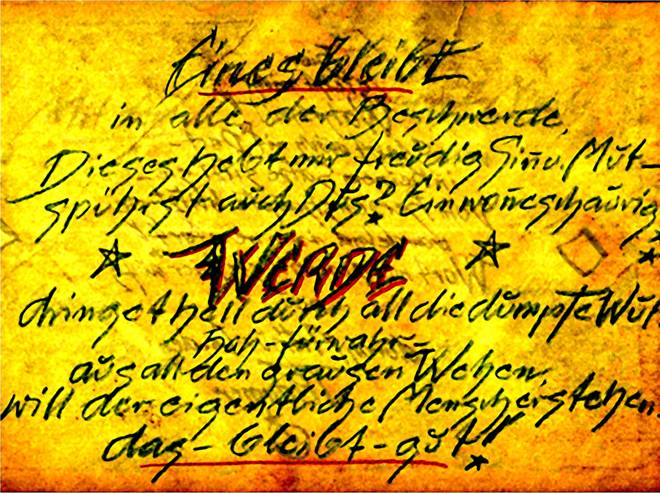 Eines bleibt
in all der Beschwerde,
Dieses hebt mir freudig Sinn. Mut-
spührst auch Du's? Ein woneschaurig
WERDE
dringet hell durch all die dumpfe Wut
Hah-fürwahr-
aus all den grausen Wehen,
will der eigentliche Mensch erstehen.
das-bleibt-gut!!